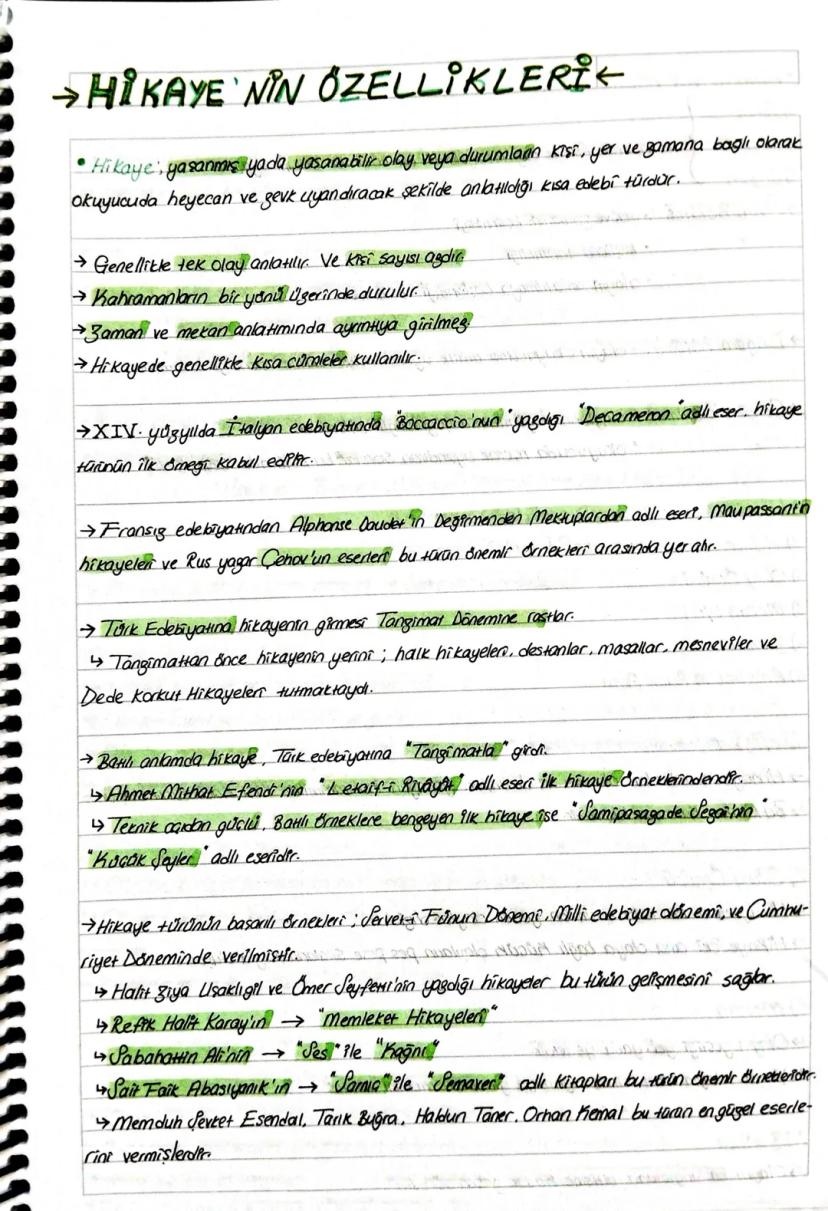 →HİKAYE'NİN ÖZELLİKLERİ←
• Hikaye; yaşanmış yada yaşanabilir olay veya durumların kişi, yer ve zamana bağlı olarak
okuyucuda heyecan ve zevk uyandıracak şekilde anlatıldığı kısa edebi türdür.
→ Genellikle tek olay anlatılır. Ve kişi sayısı azdır.
→ Kahramanların bir yönü üzerinde durulur.
→ Zaman ve mekan anlatımında ayrıntıya girilmez.
→ Hikayede genellikle kısa cümleler kullanılır.
→XIV. yüzyılda İtalyan edebiyatında "Boccaccio'nun" yazdığı "Decameron" adlı eser, hikaye
türünün ilk örneği kabul edilir.
→ Fransız edebiyatından Alphonse Daudet'in Değirmenden Mektuplardan adlı eseri, Maupassant'ın
hikayeleri ve Rus yazar Çehov'un eserleri bu türün önemli örnekleri arasında yer alır.
→ Türk Edebiyatına hikayenin girmesi Tanzimat Dönemine rastlar.
↳ Tanzimattan önce hikayenin yerini ; halk hikayeleri, destanlar, masallar, mesneviler ve
Dede Korkut Hikayeleri tutmaktaydı.
→ Batılı anlamda hikaye, Türk edebiyatına "Tanzimatla" girdi.
↳ Ahmet Mithat Efendi'nin "Letaif-i Rivâyât" adlı eseri ilk hikaye örneklerindendir.
↳ Teknik açıdan güçlü, Batılı örneklere benzeyen ilk hikaye ise "Samipaşazade Sezai'nin"
"Küçük Şeyler" adlı eseridir.
→Hikaye türünün başarılı örnekleri ; Servet-i Fünun Dönemi, Milli edebiyat dönemi, ve Cumhu-
riyet Döneminde verilmiştir.
↳ Halit Ziya Uşaklıgil ve Ömer Seyfettin'nin yazdığı hikayeler bu türün gelişmesini sağlar.
↳ Refik Halit Karay'ın → "Memleket Hikayeleri"
↳ Sabahattin Ali'nin → "Ses" ile "Kağnı"
↳ Sait Faik Abasıyanık'ın → "Sarnıç" ile "Semaver" adlı kitapları bu türün önemli örnekleridir.
↳ Memduh Şevket Esendal, Tarık Buğra, Haldun Taner, Orhan Kemal bu türün en güzel eserle-
rini vermişlerdir.